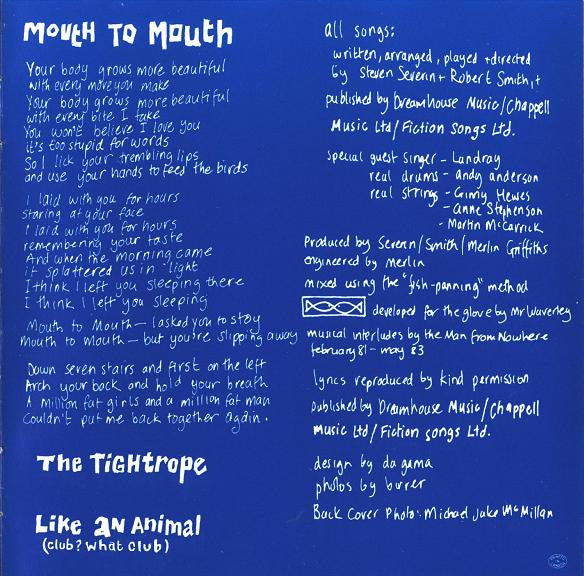 MOUTH TO MOUTH
Your body grows more beautiful
with every move you make
Your body grows more beautiful
with every bite I take
You won't believe I love you
it's too stupid for words
So I lick your trembling lips
and use your hands to feed the birds
I laid with you for hours
staring at your face
I laid with you for hours
remembering your taste
And when the morning came
it splattered us in light
I think I left you sleeping there
I think I left you sleeping
Mouth to Mouth - I asked you to stay
Mouth to mouth - but you're slipping away
Down seven stairs and first on the left
Arch your back and hold your breath
A million fat girls and a million fat man
Couldn't put me back together again.
The TiGHtrope
Like AN Animal
(club? What club)
all songs:
written, arranged, played + directed
by Steven Severin + Robert Smith, +
published by Dreamhouse Music/Chappell
Music Ltd/Fiction Songs Ltd.
special guest singer - Landray
real drums - andy anderson
real strings - Ginny Hewes
- Anne Stephenson
- Martin McCarrick
Produced by Severin/Smith/Merlin Griffiths
engineered by Merlin
mixed using the "fish-panning" method
developed for the glove by Mr Waverley
musical interludes by the Man from Nowhere
february 81 - may 83
lyrics reproduced by kind permission
published by Dreamhouse Music/Chappell
Music Ltd/Fiction songs Ltd.
design by da gama
photos by burrer
Back Cover Photo: Michael Jake McMillan